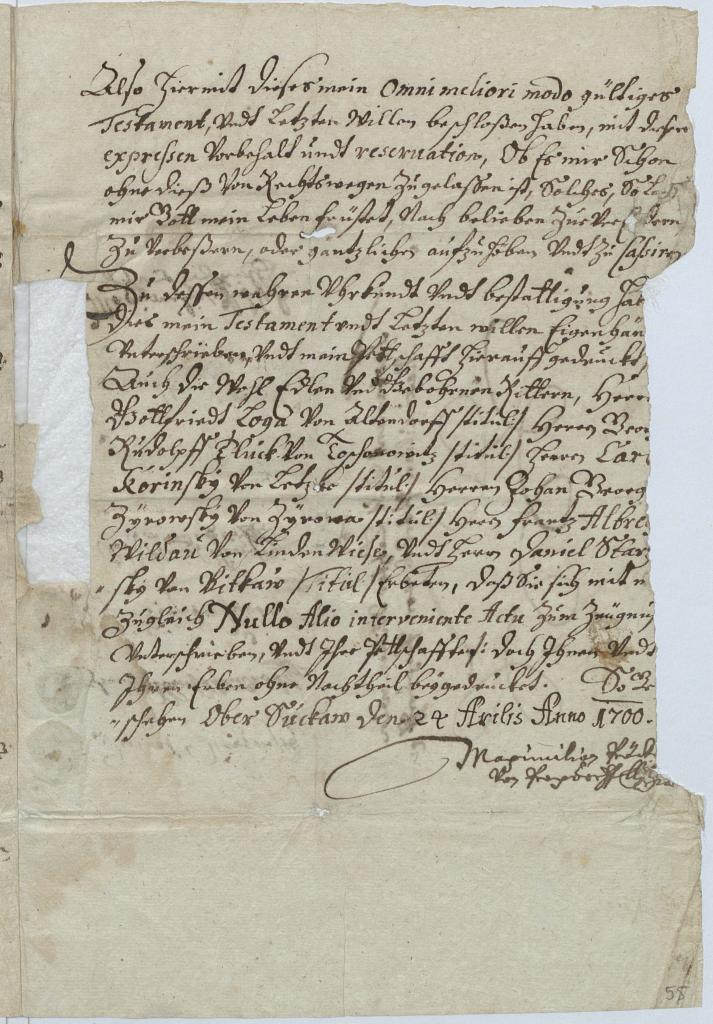 Also hiermit dieses mein Omni meliori modo gültiges
Testament, undt Letzten Willen beschloßen haben, mit dieser
expressen Vorbehalt undt reservation, Ob Es mir Schon
ohne dieß Von Rechtswegen Zugelassen ist, Solches, So
mir Gott mein Leben früstet, Nach belieben Zue
Zu Verbeßern, oder gäntzlichen aufzuheben Undt Zu Cassiren
Zu dessen wahren Uhrkundt Undt bestättigung hab
Dies mein Testament undt Letzten willen Eigenhän
Unterschrieben, Undt mein Pettschafft hierauff gedruckt,
Auch die Wohl Edlen Undt Gebohrnen Rittern, Herr
Gottfriedt Loga Von Altendorff /titul/ Herrn Geor
Rudolpff Von /titul/ Herrn Carl
Korinsky Von /titul/ Herren Johan Georg
Zyrowsky Von Zyrowa /titul/ Herrn Frantz Albre
Wildau Von Linden Wiese, Undt Herrn Daniel Star
sky Von /Titul/ Erbeten, daß Sie sich mit
Zugleich Nullo Alio interveniente Actu Zum Zeugnus
Unterschrieben, Undt Ihre Pettschafften: doch Ihnen Undt
Ihren Erben ohne Nachtheil beygedrucket. So Ge
schehen Ober Suckaw den 24 Arilis Anno 1700.
Maximilian
Von
58